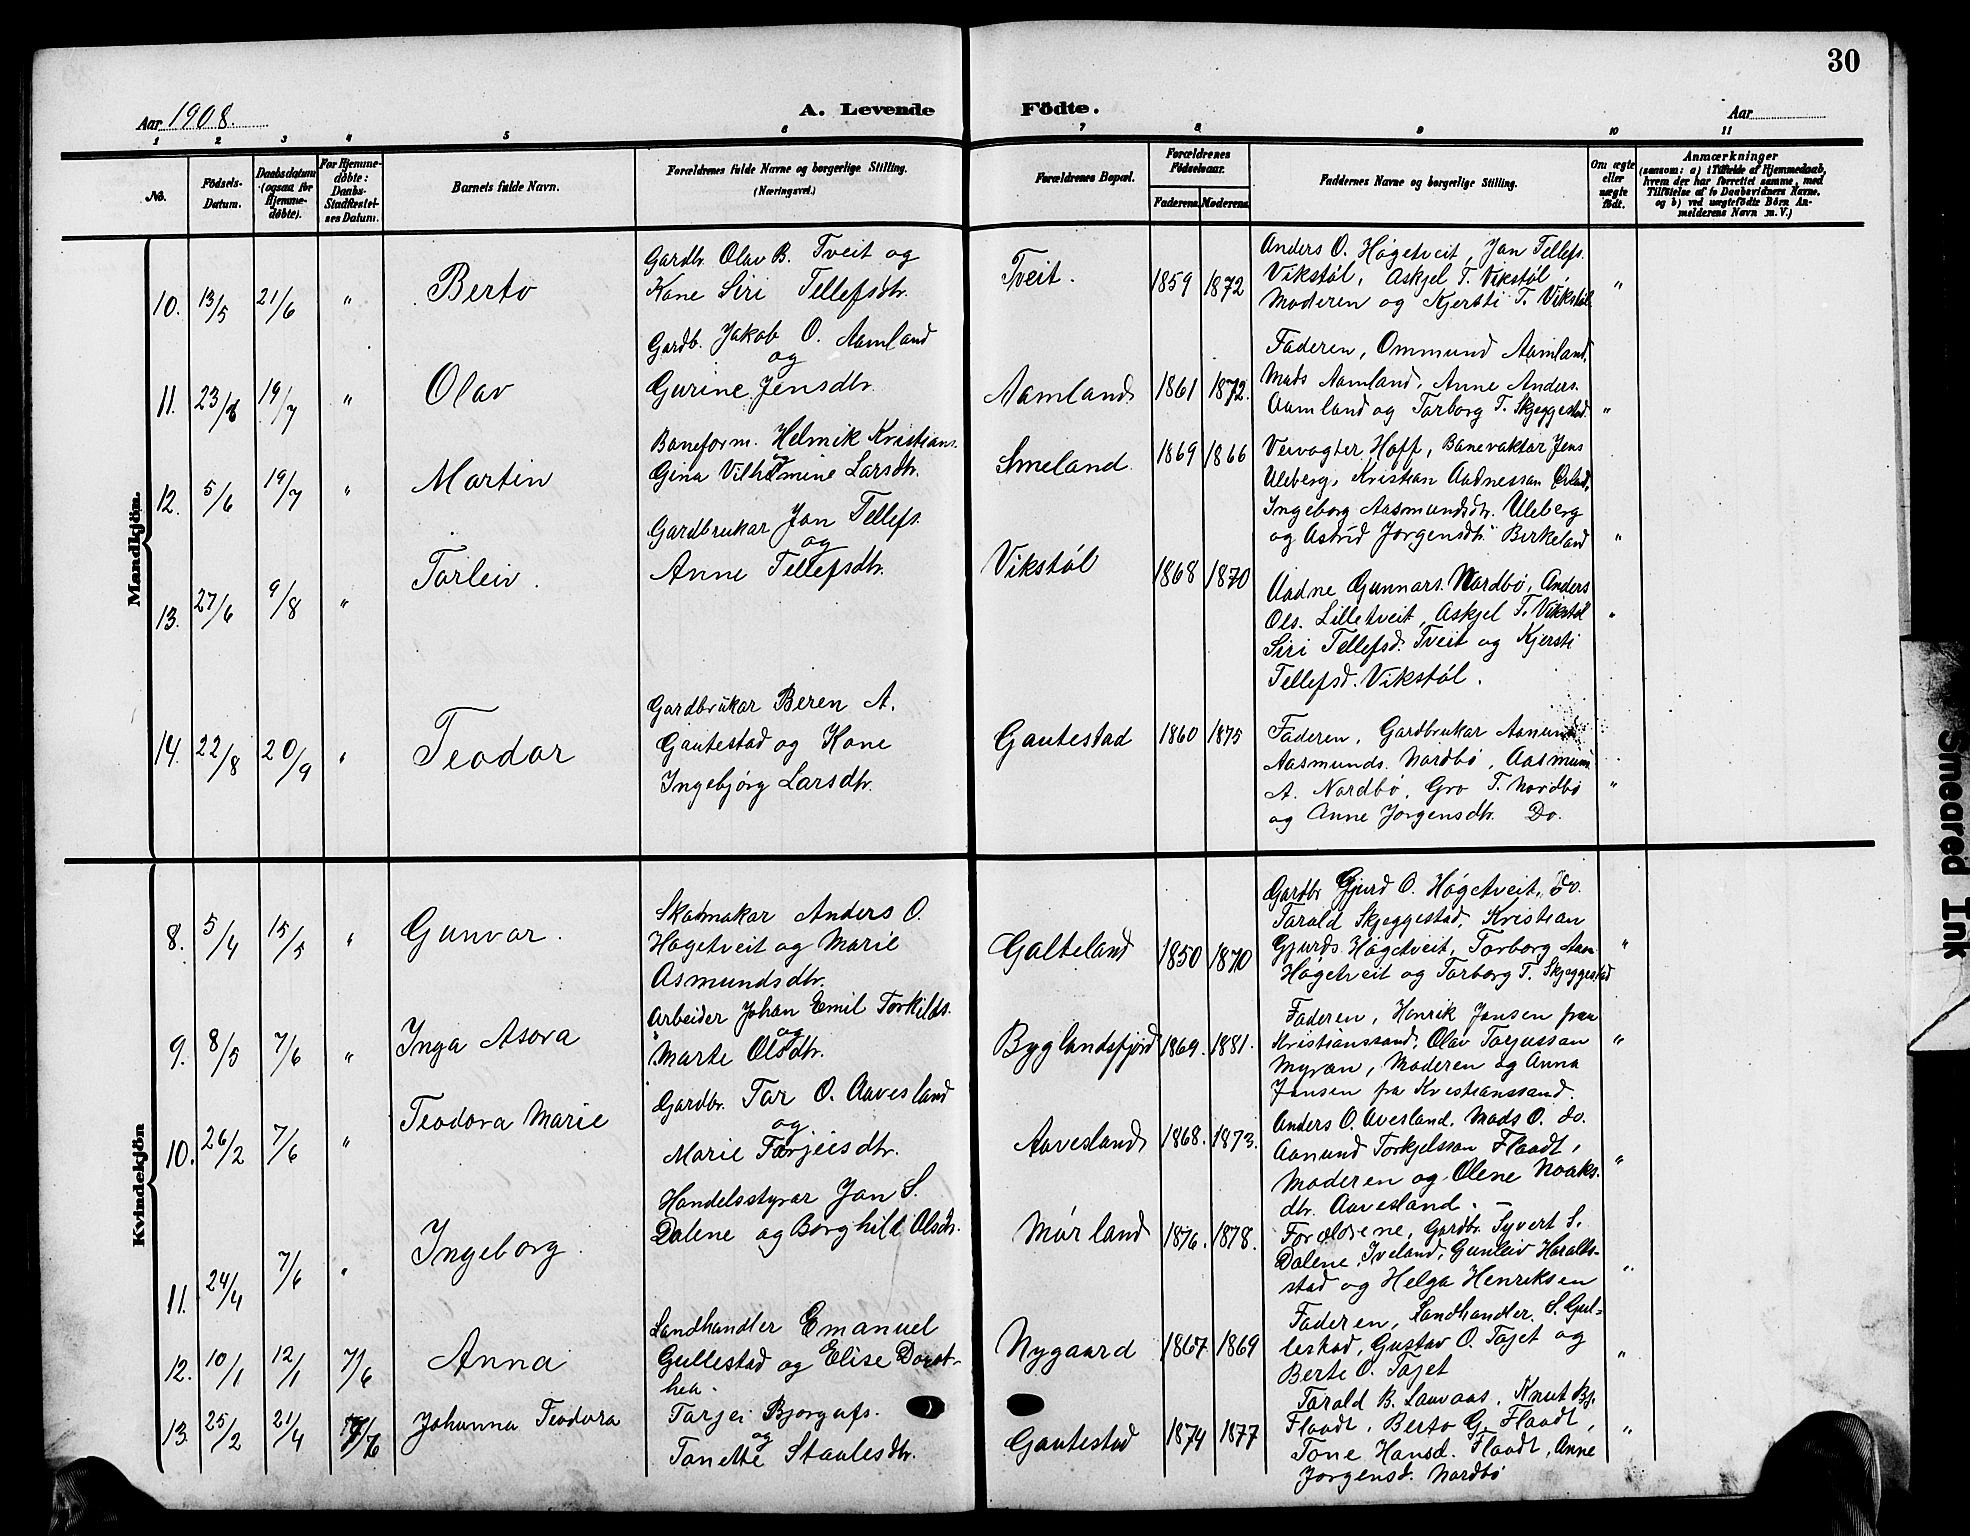 30
Aar 1908.
A. Levende Födte.
Aar
1 2 3 4 5 6 7 8 9 10 11
No.
Födsels-Datum.
Daabsdatum (ogsaa for Hjemmedøbte).
For Hjemmedøbte: Daabs-Stadfæstelses Datum.
Barnets fulde Navn.
Forældrenes fulde Navne og borgerlige Stilling.
(Næringsvei.)
Forældrenes Bopæl.
Forældrenes Födselsaar.
Faderens. Moderens.
Faddernes Navne og borgerlige Stilling.
Om ægte eller uægte født.
Anmærkninger
(saasom: a) i Tilfælde af Hjemmedaab, hvem der har forrettet samme, med Tilføielse af to Daabsvidners Navne. og b) ved uægtefödte Börn Anmelderens Navn m. V.)
Mandkjön.
10. 13/5 21/6 " Berto
Gardbr. Olav B. Tveit og
Kone Siri Tellefsdtr.
Tveit. 1859 1872
Anders O. Høgetveit, Jon Tellefs.
Vikstøl, Askjel T. Vikstøl,
Moderen og Kjersti T. Vikstøl "
11. 23/6 19/7 " Olav
Gardb. Jakob O. Aamland
og
Gurine Jensdtr.
Aamland. 1861 1872.
Faderen, Ommund Aamland,
Mads Aamland, Anne Anders.
Aamland og Torborg T. Skjeggestad. "
12. 5/6 19/7 " Martin
Baneform. Helmik Kristians.
og
Gina Vilhelmine Larsdtr.
Smeland. 1869 1866
Vervogter Hoff, Banevaktar Jens
Uleberg, Kristian Aadnessøn
Ingeborg Aasmundsdtr. Uleberg
og Astrid Jorgensdtr Birkeland "
13. 27/6 9/8 " Torleiv.
Gardbrukar Jon Tellefs.
og
Anne Tellefsdtr.
Vikstøl 1868 1870
Aadne Gunnars. Nordbø, Anders
Ols. Lilletveit, Askjel T. Vikstøl
Siri Tellefsd. Tveit og Kjersti
Tellefsd. Vikstøl. "
14. 22/8 20/9 " Teodor
Gardbrukar Beren A.
Gautestad og Kone
Ingebjørg Larsdtr.
Gautestad 1860 1875
Faderen, Gardbrukar Aanund
Aasmunds. Nordbø, Aasmun
A. Nordbø, Gro T. Nordbø
og Anne Jorgensdtr. Do. "
Kvindekjön
8. 5/4 15/5 " Gunvor.
Skomakar Anders O.
Høgetveit og Marie
Asmundsdtr.
Galteland 1850 1870
Gardbr Gjurd O. Høgetveit, do.
Tarald Skjeggestad, Kristian
Gjurds Høgetveit, Torborg Aan
Høgetveit og Torborg T. Skjeggestad "
9. 8/5 7/6 " Inga Asora
Arbeider Johan Emil Torkilds.
og
Marte Olsdtr.
Byglandsfjord 1869. 1881.
Faderen, Henrik Jansen fraa
Kristianssand, Olav Torjussøn
Myran, Moderen og Anna
Jansen fra Kristianssand. "
10. 26/2 7/6 " Teodora Marie
Gardbr. Tor O. Aavesland
og
Marie Tarjeisdtr.
Aavesland 1868. 1873.
Anders O. Avesland, Mads O. do.
Aanund Torkjelssøn Flaadt,
Moderen og Olene Noaks.
dtr. Aavesland. – "
11. 24/4 7/6 " Ingeborg.
Handelsstyrar Jon S.
Dalene og Borghild Olsdtr.
Mørland 1876. 1878.
Foreldrene, Gardbr. Syvert S.
Dalene, Iveland, Gunleiv Haralds-
stad og Helga Henriksen "
12. 10/1 12/1 7/6 Anna
Landhandler Emanuel
Gullestad og Elise Dorot-
hea.
Nygaard 1867 1869
Faderen, Landhandler S. Gul-
lestad, Gustav O. Tajet og
Berte O. Tajet "
13. 25/2 21/4 Johanna Teodora
Tarjei Bjorgufs.
og
Tonette Staalesdtr.
Gautestad 1874 1877
Tarald B. Lauvaas, Knut Bj.
Flaadt, Berto G. Flaadt,
Tone Hansd. Flaadt, Anne
Jorgensd. Nordbø "
Smeared Ink